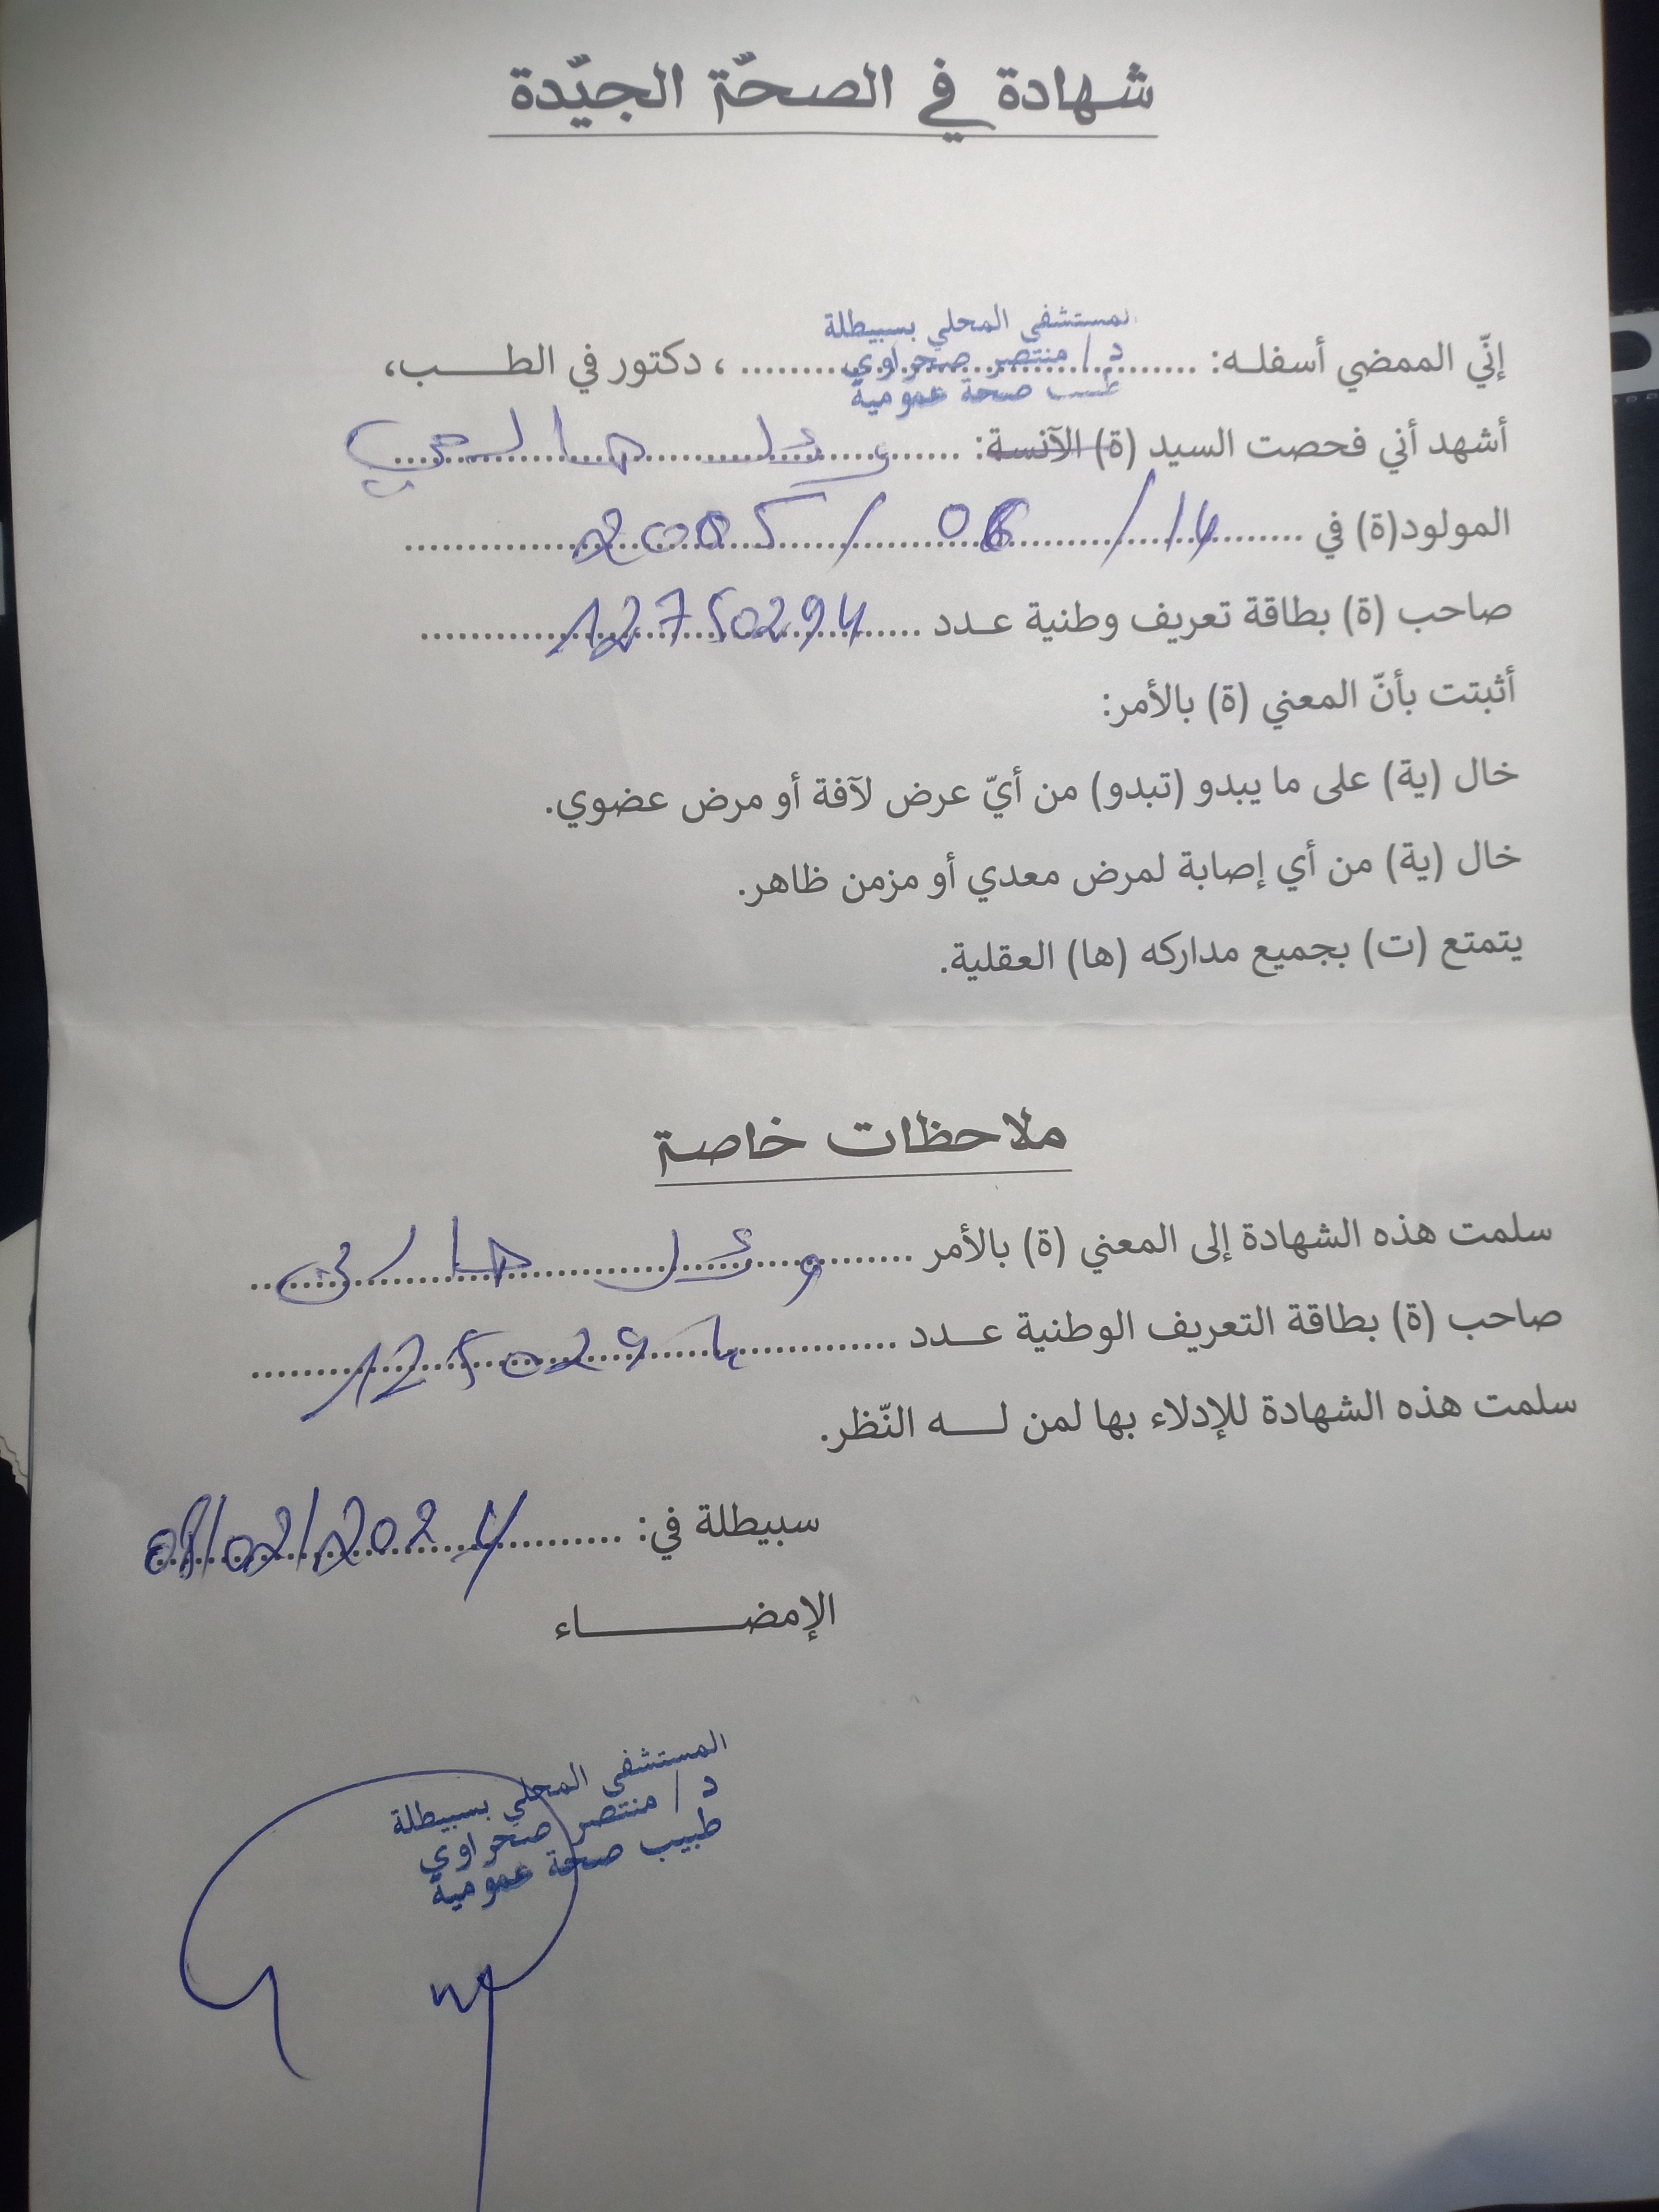 شهادة في الصحّة الجيّدة
لمستشفى المحلي بسبيطلة
إنّي الممضي أسفله: د/ منتصر صحراوي ، دكتور في الطب،
طب صحة عمومية
أشهد أني فحصت السيد (ة) الآنسة: وئل
المولود(ة) في 14/ 06 / 2005
صاحب (ة) بطاقة تعريف وطنية عدد 12750294
أثبتت بأنّ المعني (ة) بالأمر:
خال (ية) على ما يبدو (تبدو) من أيّ عرض لآفة أو مرض عضوي.
خال (ية) من أي إصابة لمرض معدي أو مزمن ظاهر.
يتمتع (ت) بجميع مداركه (ها) العقلية.
ملاحظات خاصة
سلمت هذه الشهادة إلى المعني (ة) بالأمر وئل
صاحب (ة) بطاقة التعريف الوطنية عدد 1250294
سلمت هذه الشهادة للإدلاء بها لمن له النّظر.
سبيطلة في: 08/02/2024
الإمضاء
المستشفى المحلي بسبيطلة
د/ منتصر صحراوي
طبيب صحة عمومية